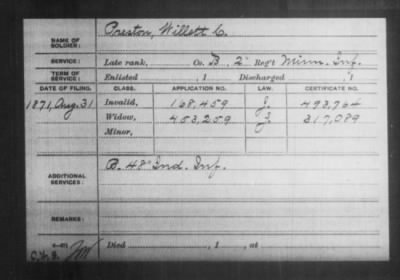 NAME OF SOLDIER: Preston, Willett C.
SERVICE: Late rank, Co. B, 2" Reg't Minn. Inf.
TERM OF SERVICE: Enlisted , 1 Discharged , 1
DATE OF FILING. CLASS. APPLICATION NO. LAW. CERTIFICATE NO.
1871, Aug. 31 Invalid, 168,459 J. 493,764
Widow, 453,259 J. 317,089
Minor,
ADDITIONAL SERVICES: B. 48" Ind. Inf.
REMARKS:
Died , 1 , at